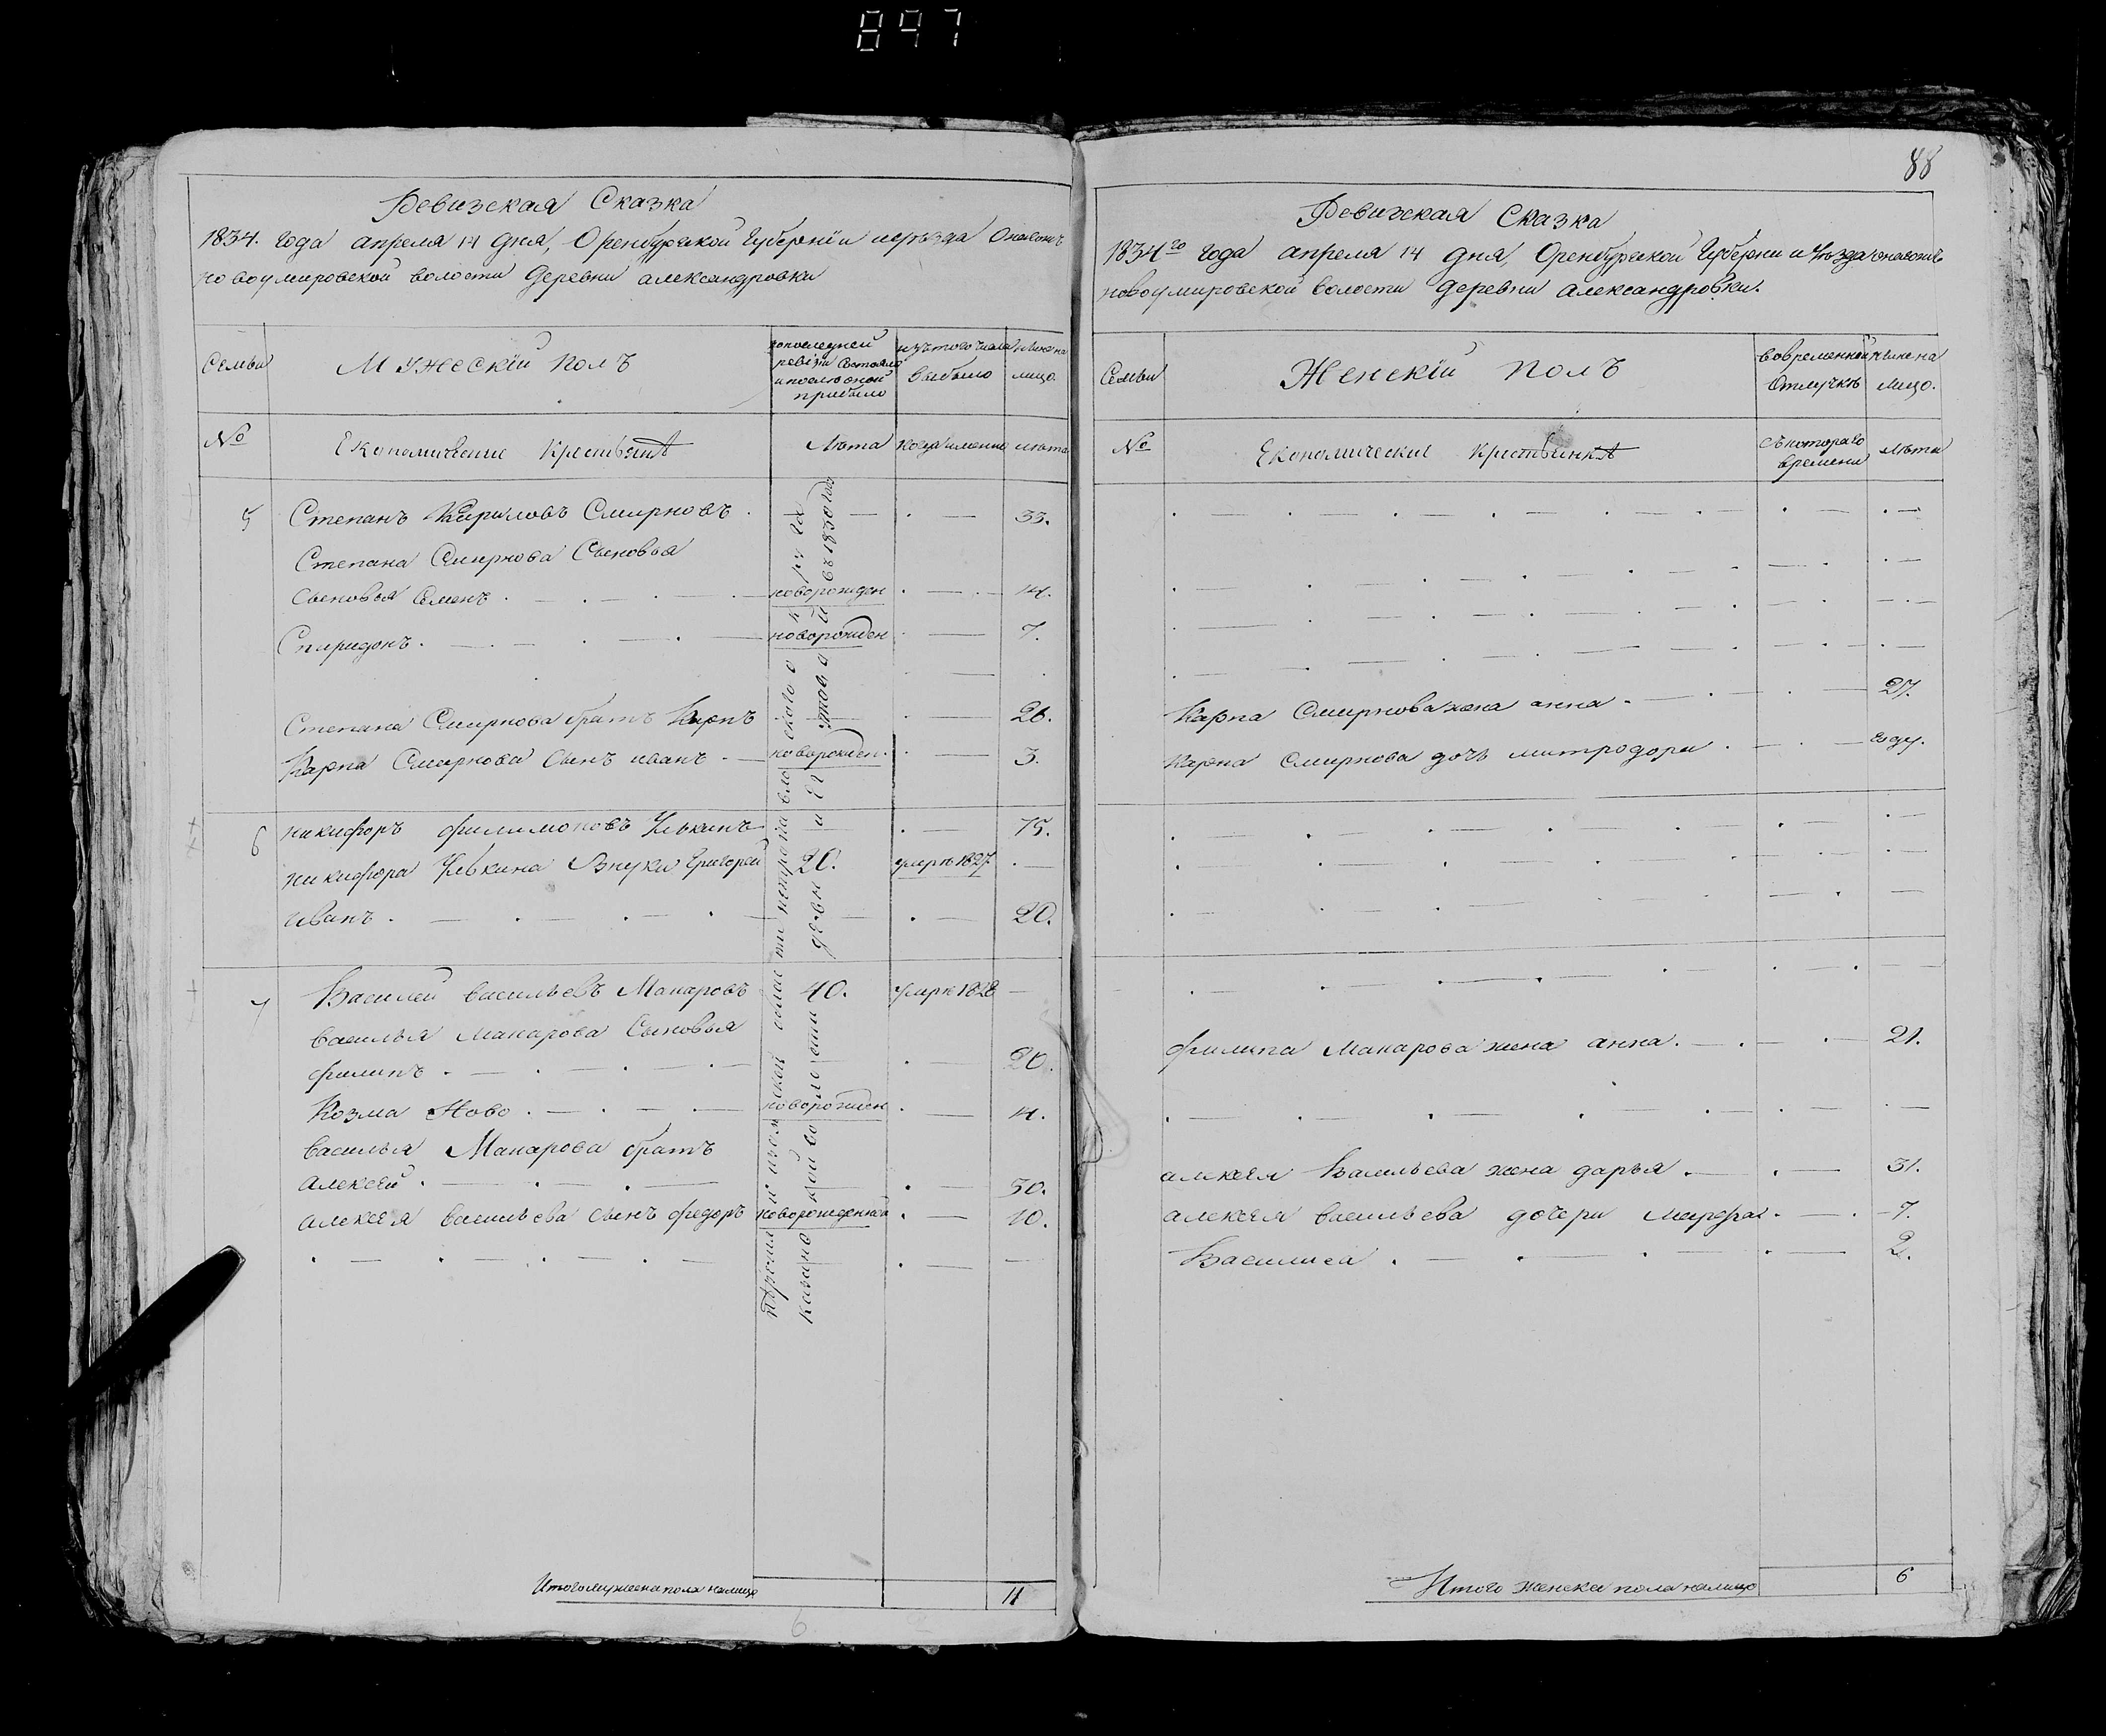 897
Ревизская Сказка
1834. года апреля 14 дня, Оренбургской Губернїи и
новоумировской волости деревни александровки
Семьи
Мужескїй полъ
по последней
ревезїи состояло
и после оной
прибыло
изътого числа
выбыло
ныне на
лицо.
№
Економические Крестьяня
Лѣта
когда именно
лѣта
5 Степанъ Кириловъ Смирновъ. 33.
Степана Смирнова Сыновья
Сыновья Семенъ. новорожден 14.
Спиридонъ. новорожден 7.
Степана Смирнова братъ Карпъ 26.
Карпа Смирнова Сынъ иванъ новорожден. 3.
6 никифоръ филимоновъ 75.
никифора Внуки Григорей 20. умре 1827
иванъ. 20.
7 Василей васильевъ Макаровъ 40. умре 1828
васильья макарова Сыновья
филипъ. 20.
Козма Ново. новорожден 4.
васильья Макарова братъ
алексей. 30.
алексея васильева сынъ федоръ новорожденной 10.
въ 1830 год
Итого мужеска пола налицо 11
6
88
Ревизская Сказка
1834го года апреля 14 дня, Оренбургской Губернии и уѣзда
новоумировской волости деревни александровки.
Семьи
Женскїй полъ
во временной
Отлучкѣ
ныне на
лицо.
№
Економические Крестьянкя
съ котораго
времени
лѣта
Карпа Смирнова жена анна. 27.
Карпа Смирнова дочь митродора. году.
филипа Макарова жена анна. 21.
алексея Васильева жена дарья. 31.
алексея васильева дочери марфа. 7.
Василиса. 2.
Итого женска пола налицо 6